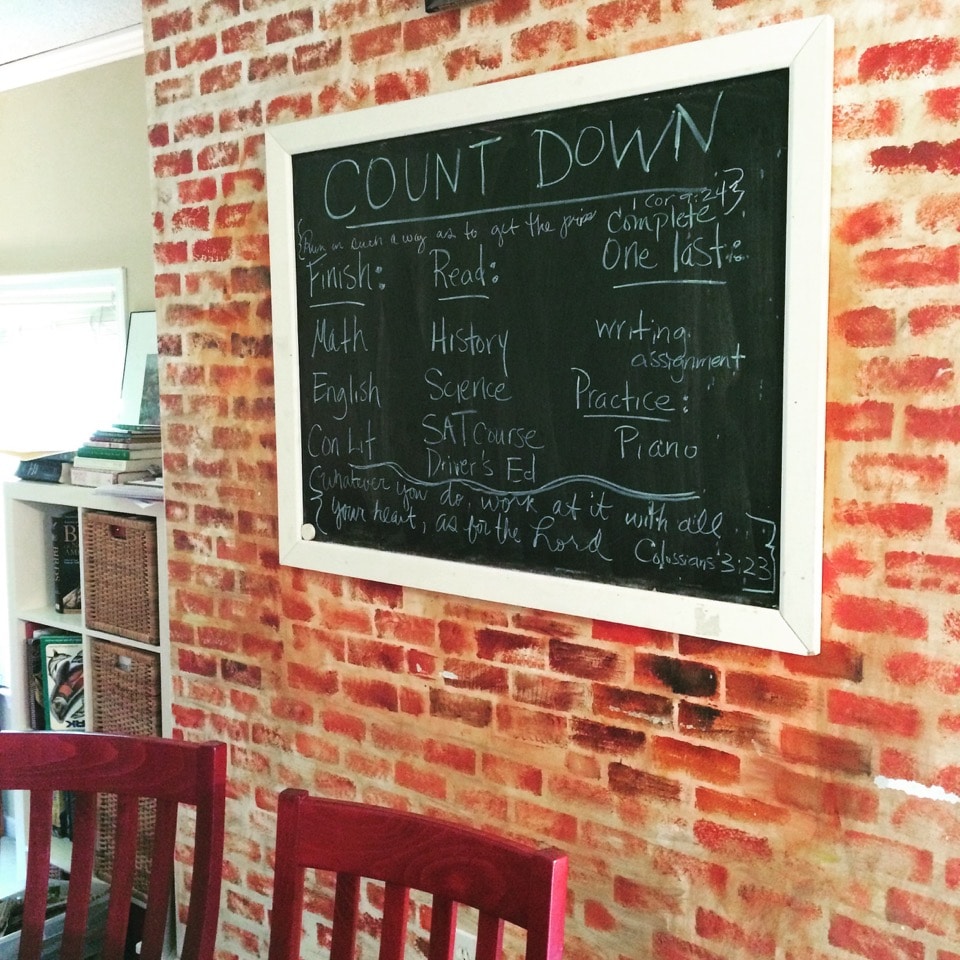 COUNT DOWN
{Run in such a way as to get the prize 1 Cor 9:24}
Finish:
Math
English
Con Lit
Read:
History
Science
SAT Course
Driver's Ed
Complete
One last:
writing
assignment
Practice:
Piano
{whatever you do, work at it with all
your heart, as for the Lord Colossians 3:23}